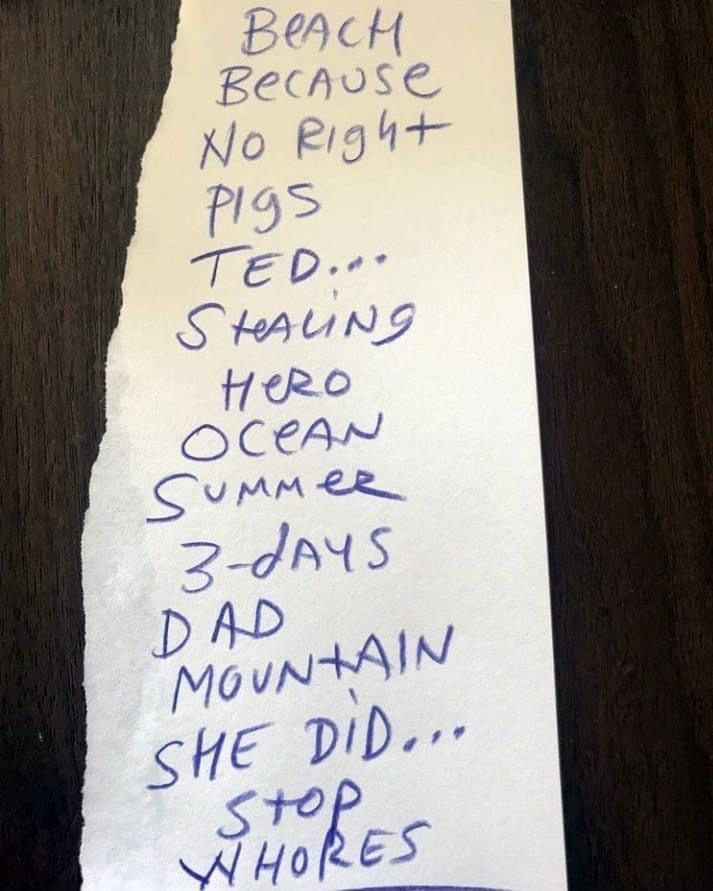 BeACH
BeCAUSe
No RIght
PIgS
TED...
SteALiNg
HeRO
OCeAN
SUMMeR
3-dAYS
DAD
MOUNtAIN
SHE DiD...
StOP
WHORES